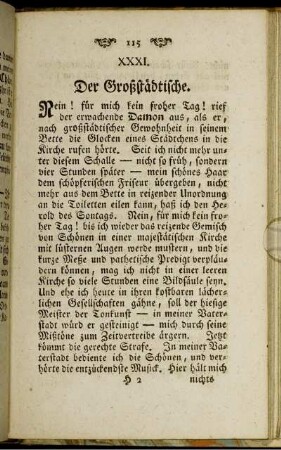 115
XXXI.
Der Großstädtische.
Nein! für mich kein froher Tag! rief
der erwachende Damon aus, als er,
nach großstädtischer Gewohnheit in seinem
Bette die Glocken eines Städtchens in die
Kirche rufen hörte. Seit ich nicht mehr un-
ter diesem Schalle — nicht so früh, sondern
vier Stunden später — mein schönes Haar
dem schöpferischen Friseur übergeben, nicht
mehr aus dem Bette in reizender Unordnung
an die Toiletten eilen kann, haß ich den He-
rold des Sontags. Nein, für mich kein fro-
her Tag! bis ich wieder das reizende Gemisch
von Schönen in einer majestätischen Kirche
mit lüsternen Augen werde mustern, und die
kurze Meße und pathetische Predigt verplau-
dern können, mag ich nicht in einer leeren
Kirche so viele Stunden eine Bildsäule seyn.
Und ehe ich heute in ihren kostbaren lächer-
lichen Gesellschaften gähne, soll der hiesige
Meister der Tonkunst — in meiner Vater-
stadt würd er gesteinigt — mich durch seine
Mißtöne zum Zeitvertreibe ärgern. Jetzt
kömmt die gerechte Strafe. In meiner Va-
terstadt bediente ich die Schönen, und ver-
hörte die entzückendste Musick. Hier hält mich
H 2 nichts